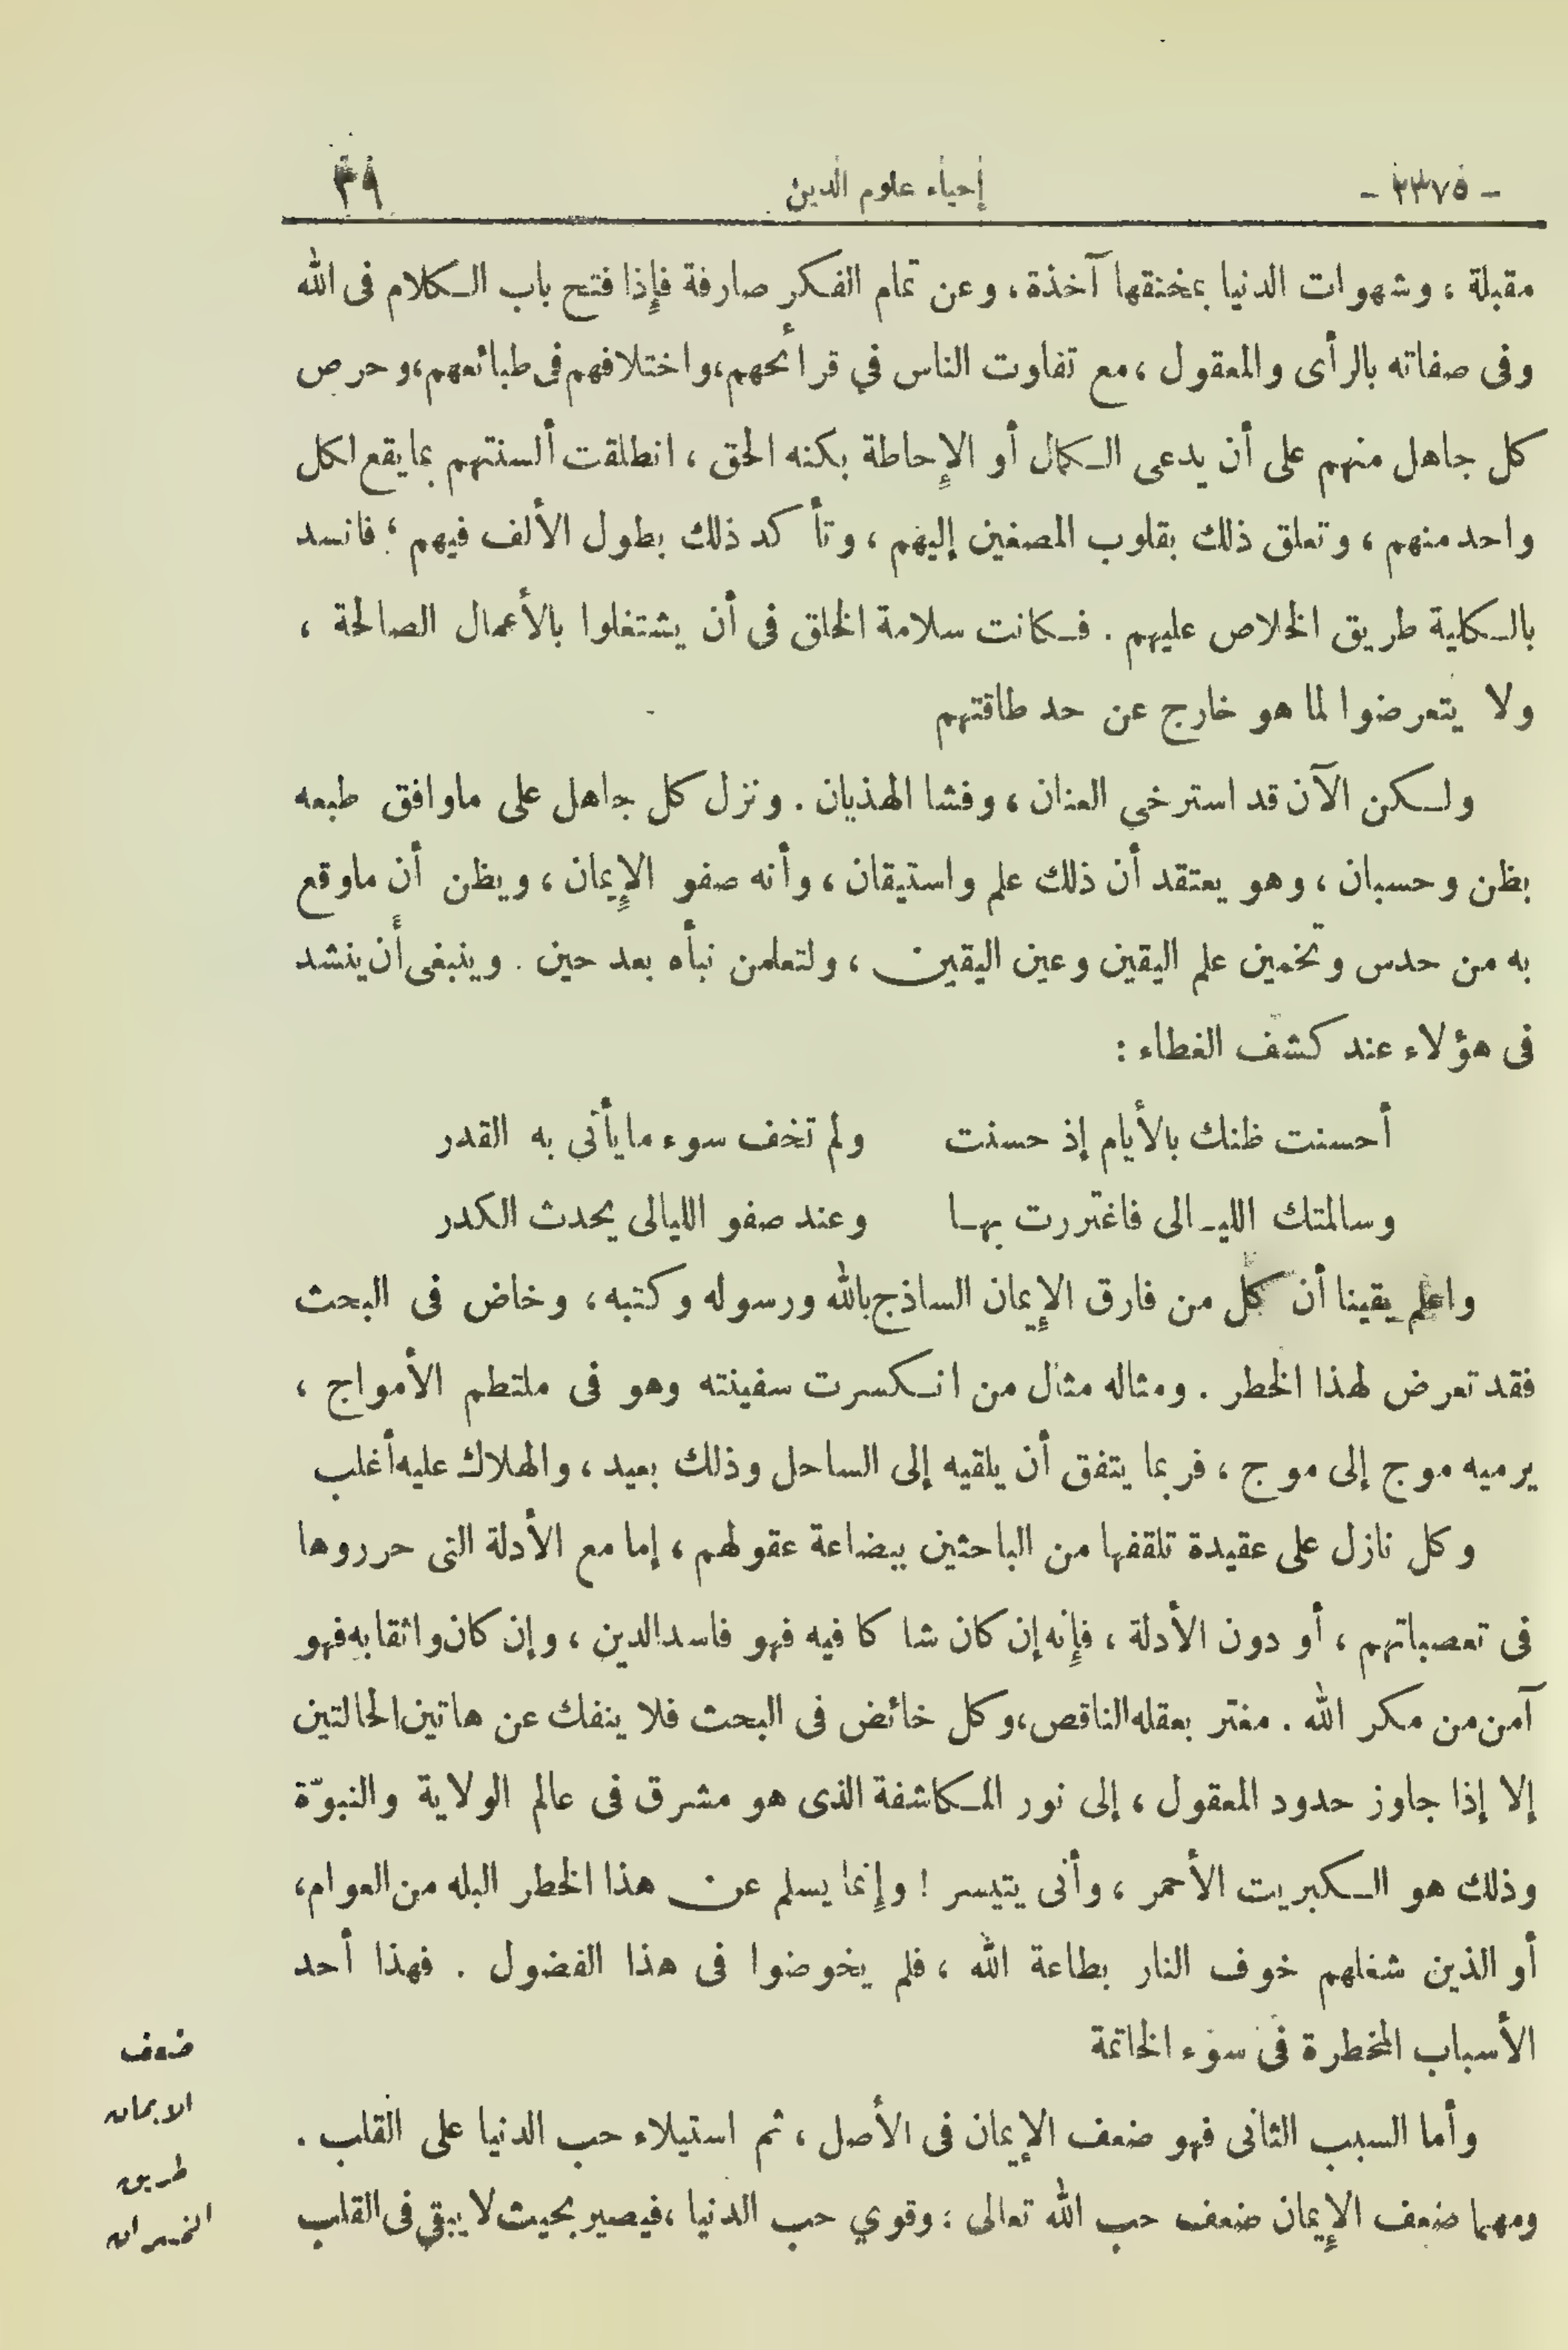 - ٢٣٧٥ - إحياء علوم الدين ٣٩
مقبلة ، وشهوات الدنيا بمخنقها آخذة ، وعن تمام الفكر صارفة فإذا فتح باب الكلام فى الله
وفى صفاته بالرأى والمعقول ، مع تفاوت الناس في قرائحهم ، واختلافهم فى طبائعهم ، وحرص
كل جاهل منهم على أن يدعى الكمال أو الإحاطة بكنه الحق ، انطلقت ألسنتهم بما يقع لكل
واحد منهم ، وتعلق ذلك بقلوب المصغين إليهم ، وتأكد ذلك بطول الألف فيهم ؛ فانسد
بالكلية طريق الخلاص عليهم . فكانت سلامة الخلق فى أن يشتغلوا بالأعمال الصالحة ،
ولا يتعرضوا لما هو خارج عن حد طاقتهم
ولكن الآن قد استرخي العنان ، وفشا الهذيان . ونزل كل جاهل على ماوافق طبعه
بظن وحسبان ، وهو يعتقد أن ذلك علم واستيقان ، وأنه صفو الإيمان ، ويظن أن ماوقع
به من حدس وتخمين علم اليقين وعين اليقين ، ولتعلمن نبأه بعد حين . وينبغى أن ينشد
فى هؤلاء عند كشف الغطاء :
أحسنت ظنك بالأيام إذ حسنت ولم تخف سوء ما يأتي به القدر
وسالمتك الليالى فاغتررت بها وعند صفو الليالى يحدث الكدر
واعلم يقينا أن كل من فارق الإيمان الساذج بالله ورسوله وكتبه ، وخاض فى البحث
فقد تعرض لهذا الخطر . ومثاله مثال من انكسرت سفينته وهو فى ملتطم الأمواج ،
يرميه موج إلى موج ، فربما يتفق أن يلقيه إلى الساحل وذلك بعيد ، والهلاك عليه أغلب
وكل نازل على عقيدة تلقفها من الباحثين ببضاعة عقولهم ، إما مع الأدلة التى حرروها
فى تعصباتهم ، أو دون الأدلة ، فإنه إن كان شاكا فيه فهو فاسد الدين ، وإن كان واثقا به فهو
آمن من مكر الله . مغتر بعقله الناقص ، وكل خائض فى البحث فلا ينفك عن هاتين الحالتين
إلا إذا جاوز حدود المعقول ، إلى نور المكاشفة الذى هو مشرق فى عالم الولاية والنبوّة
وذلك هو الكبريت الأحمر ، وأنى يتيسر ! وإنما يسلم عن هذا الخطر البله من العوام ،
أو الذين شغلهم خوف النار بطاعة الله ، فلم يخوضوا فى هذا الفضول . فهذا أحد
الأسباب المخطرة فى سوء الخاتمة
وأما السبب الثانى فهو ضعف الإيمان فى الأصل ، ثم استيلاء حب الدنيا على القلب .
ومهما ضعف الإيمان ضعف حب الله تعالى ؛ وقوي حب الدنيا ، فيصير بحيث لا يبقي فى القلب
ضعف
الايمان
طريق
الخسران